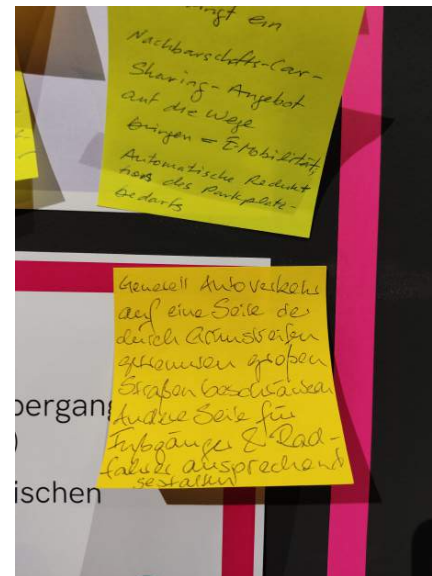 ingt ein
Nachbarschafts-Car-
Sharing-Angebot
auf die Wege
bringen = E-Mobilität,
Automatische Reduk
tion des Parkplatz-
bedarfs
Generell Autoverkehr
auf eine Seite der
durch Grünstreifen
getrennten großen
Straßen beschränken
Andere Seite für
Fußgänger & Rad-
fahrer ansprechend
gestalten
bergang
)
ischen